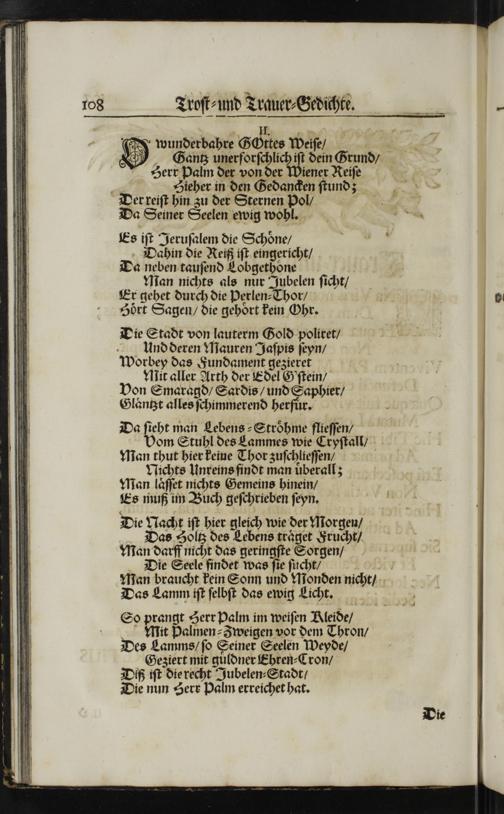 108 Trost- und Trauer-Gedichte.
II.
O wunderbahre GOttes Weise/
Gantz unerforschlich ist dein Grund/
Herr Palm der von der Wiener Reise
Hieher in den Gedancken stund;
Der reist hin zu der Sternen Pol/
Da Seiner Seelen ewig wohl.
Es ist Jerusalem die Schöne/
Dahin die Reiß ist eingericht/
Da neben tausend Lobgethöne
Man nichts als nur Jubelen sicht/
Er gehet durch die Perlen-Thor/
Hört Sagen/ die gehört kein Ohr.
Die Stadt von lauterm Gold poliret/
Und deren Mauren Jaspis seyn/
Worbey das Fundament gezieret
Mit aller Arth der Edel G'stein/
Von Smaragd/ Sardis/ und Saphier/
Gläntzt alles schimmerend herfür.
Da sieht man Lebens-Ströhme fliessen/
Vom Stuhl des Lammes wie Crystall/
Man thut hier keine Thor zuschliessen/
Nichts Unreins findt man überall;
Man lässet nichts Gemeins hinein/
Es muß im Buch geschrieben seyn.
Die Nacht ist hier gleich wie der Morgen/
Das Holtz des Lebens träget Frucht/
Man darff nicht das geringste Sorgen/
Die Seele findet was sie sucht/
Man braucht kein Sonn und Monden nicht/
Das Lamm ist selbst das ewig Licht.
So prangt Herr Palm im weisen Kleide/
Mit Palmen-Zweigen vor dem Thron/
Des Lamms/ so Seiner Seelen Weyde/
Geziert mit güldner Ehren-Cron/
Diß ist die recht Jubelen-Stadt/
Die nun Herr Palm erreichet hat.
Die